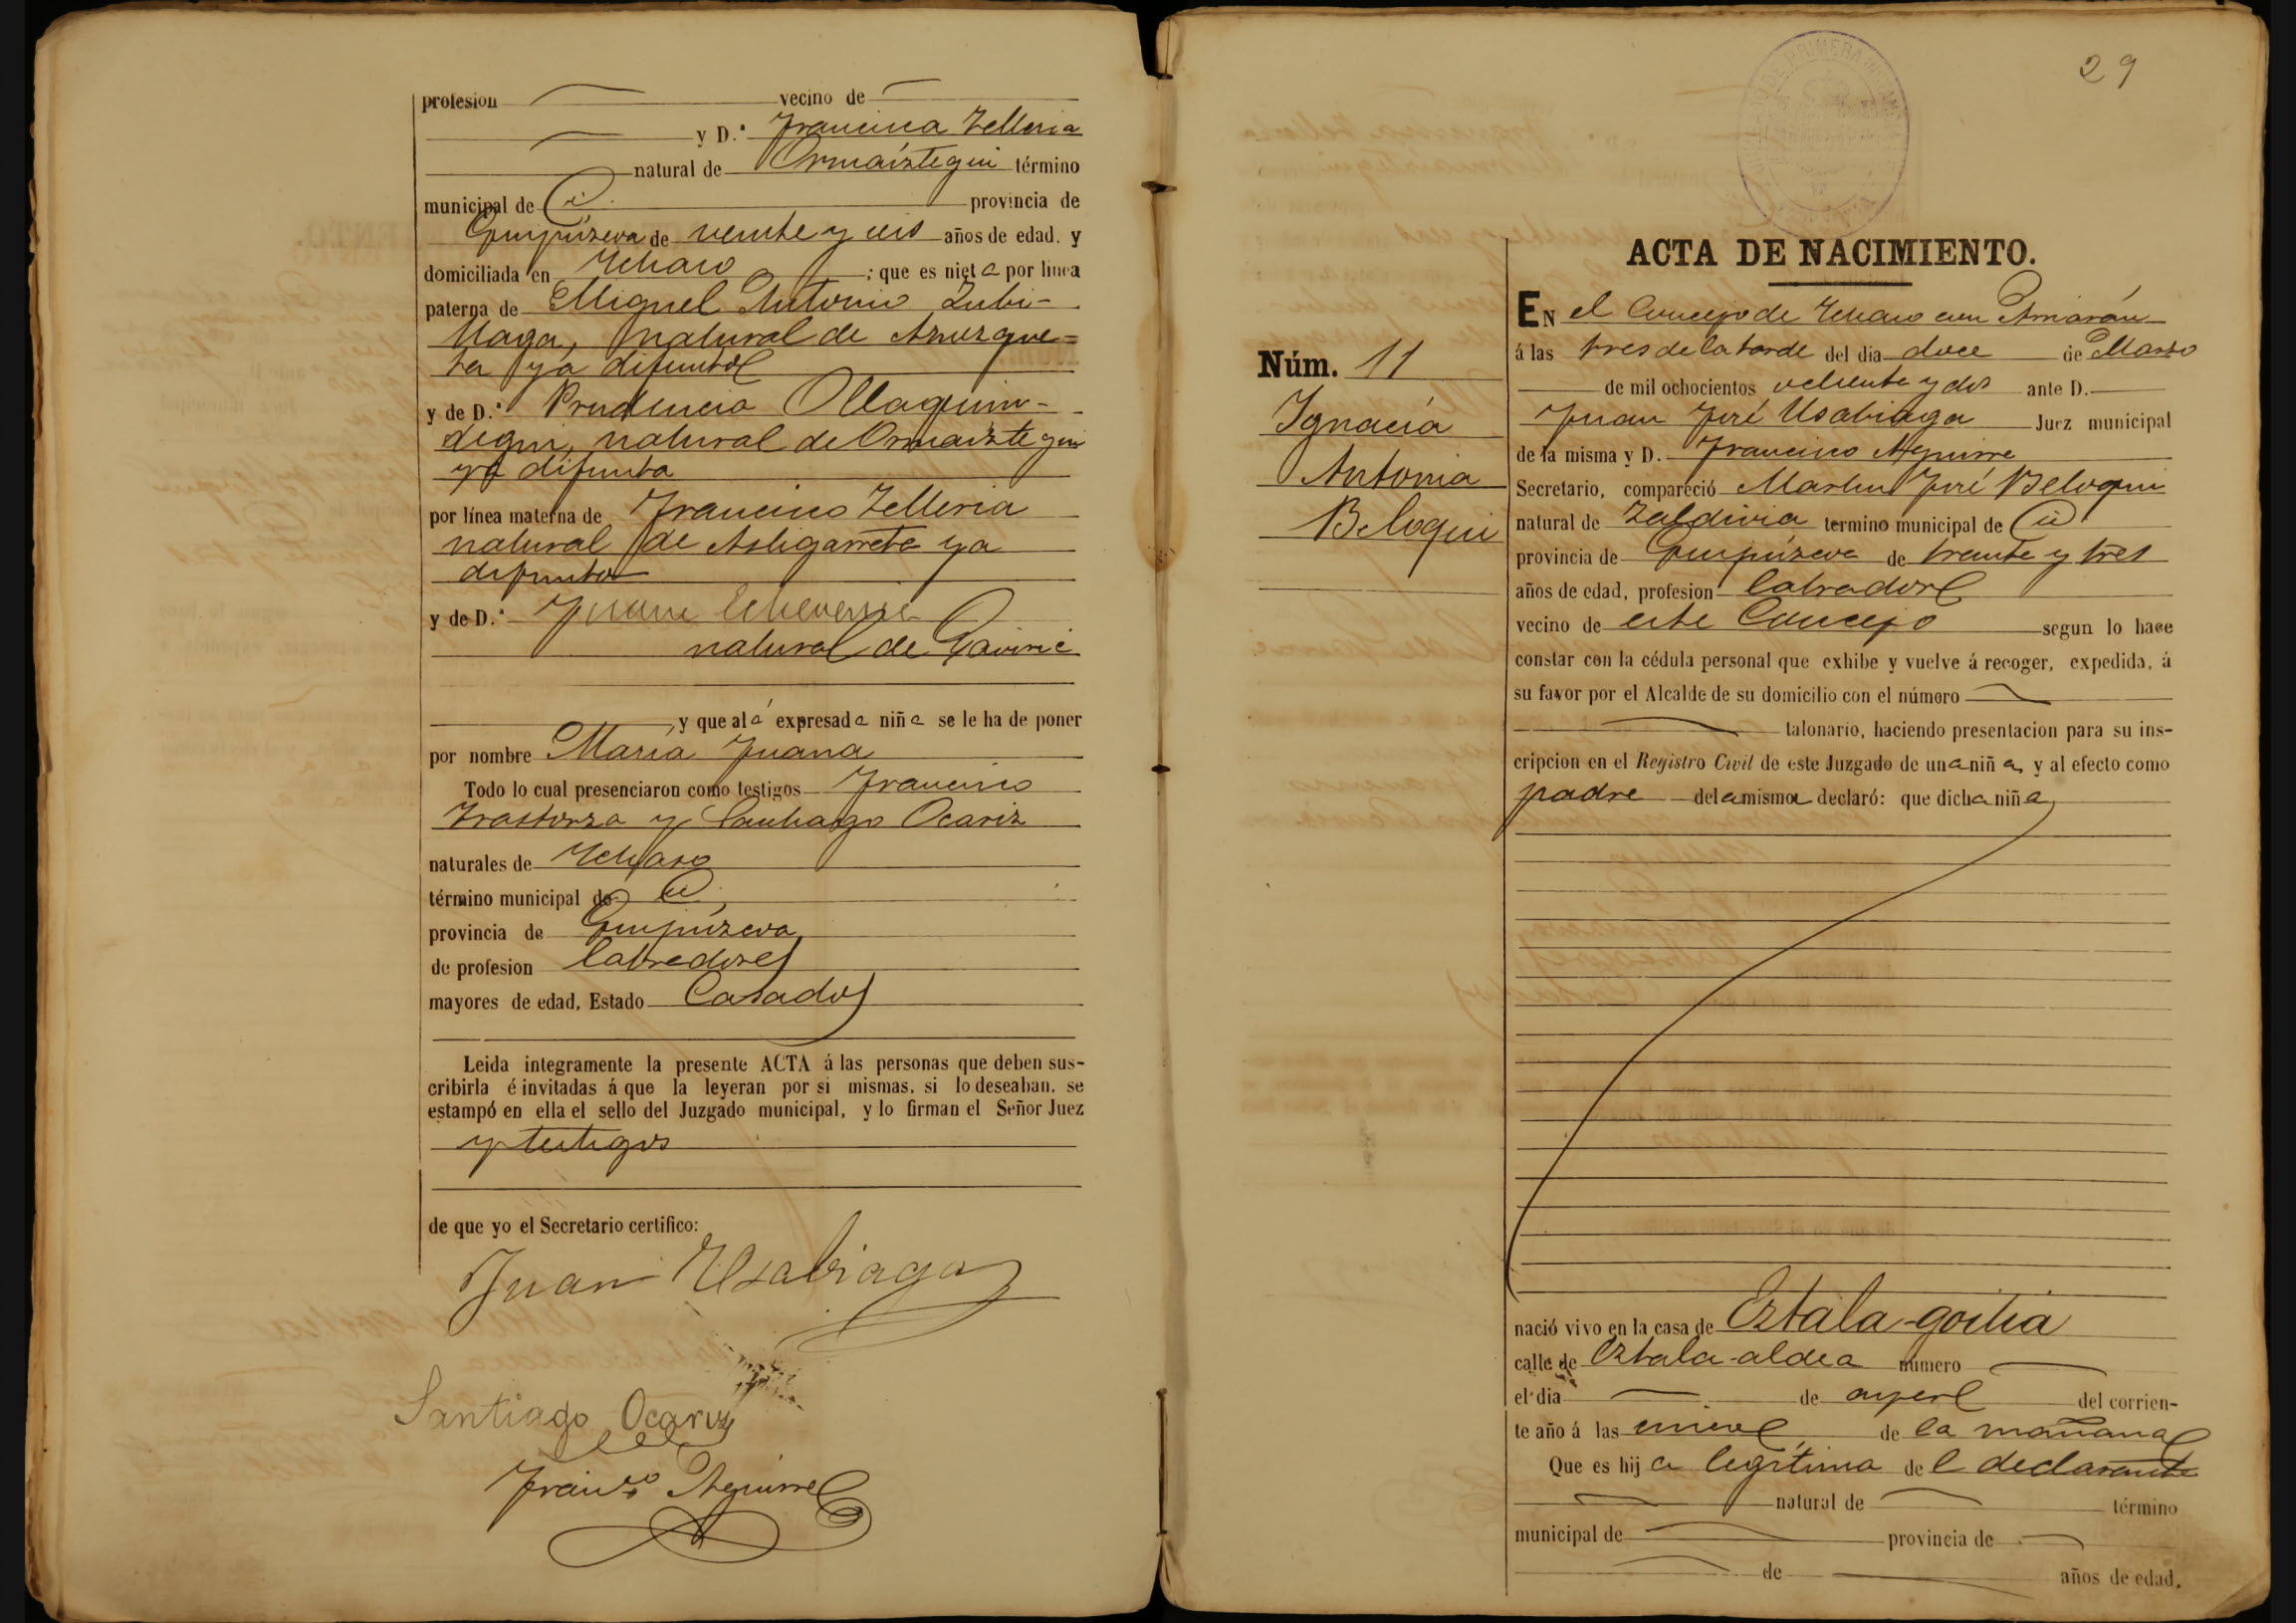 profesion vecino de
y D.ª Francisca Telleria
natural de Ormaiztegui término
municipal de id. provincia de
Guipúzcoa de veinte y seis años de edad, y
domiciliada en Ichaso ; que es nieta por línea
paterna de Miguel Antonio Zubi-
llaga, natural de
ya difunto
y de D.ª Prudencia Ollaquin-
degui, natural de Ormaiztegui
ya difunta
por línea materna de Francisco Telleria
natural de Astigarreta ya
difunto
y de D.ª Juana Echeverria
natural de Gaviria
y que a la expresada niña se le ha de poner
por nombre María Juana
Todo lo cual presenciaron como testigos Francisco
Irastorza y Santiago Ocariz
naturales de Ichaso
término municipal de id.
provincia de Guipúzcoa
de profesion labradores
mayores de edad, Estado Casados
Leida integramente la presente ACTA á las personas que deben sus-
cribirla é invitadas á que la leyeran por si mismas, si lo deseaban, se
estampó en ella el sello del Juzgado municipal, y lo firman el Señor Juez
y testigos
de que yo el Secretario certifico:
Juan Usabiaga
Santiago Ocariz
Fran.co Aguirre
29
ACTA DE NACIMIENTO.
Núm. 11
Ignacia
Antonia
Beloqui
EN el Concejo de Ichaso con Arriarán
á las tres de la tarde del dia doce de Marzo
de mil ochocientos ochenta y dos ante D.
Juan José Usabiaga Juez municipal
de la misma y D. Francisco Aguirre
Secretario, compareció Martin José Beloqui
natural de Zaldivia termino municipal de id
provincia de Guipúzcoa de treinta y tres
años de edad, profesion labrador
vecino de este Concejo segun lo hace
constar con la cédula personal que exhibe y vuelve á recoger, expedida, á
su favor por el Alcalde de su domicilio con el número
talonario, haciendo presentacion para su ins-
cripcion en el Registro Civil de este Juzgado de una niña, y al efecto como
padre de la misma declaró: que dicha niña
nació vivo en la casa de Eztala-goitia
calle de Eztala-aldea número
el dia de ayer del corrien-
te año á las nueve de la mañana
Que es hija legítima del declarante
natural de término
municipal de provincia de
de años de edad,